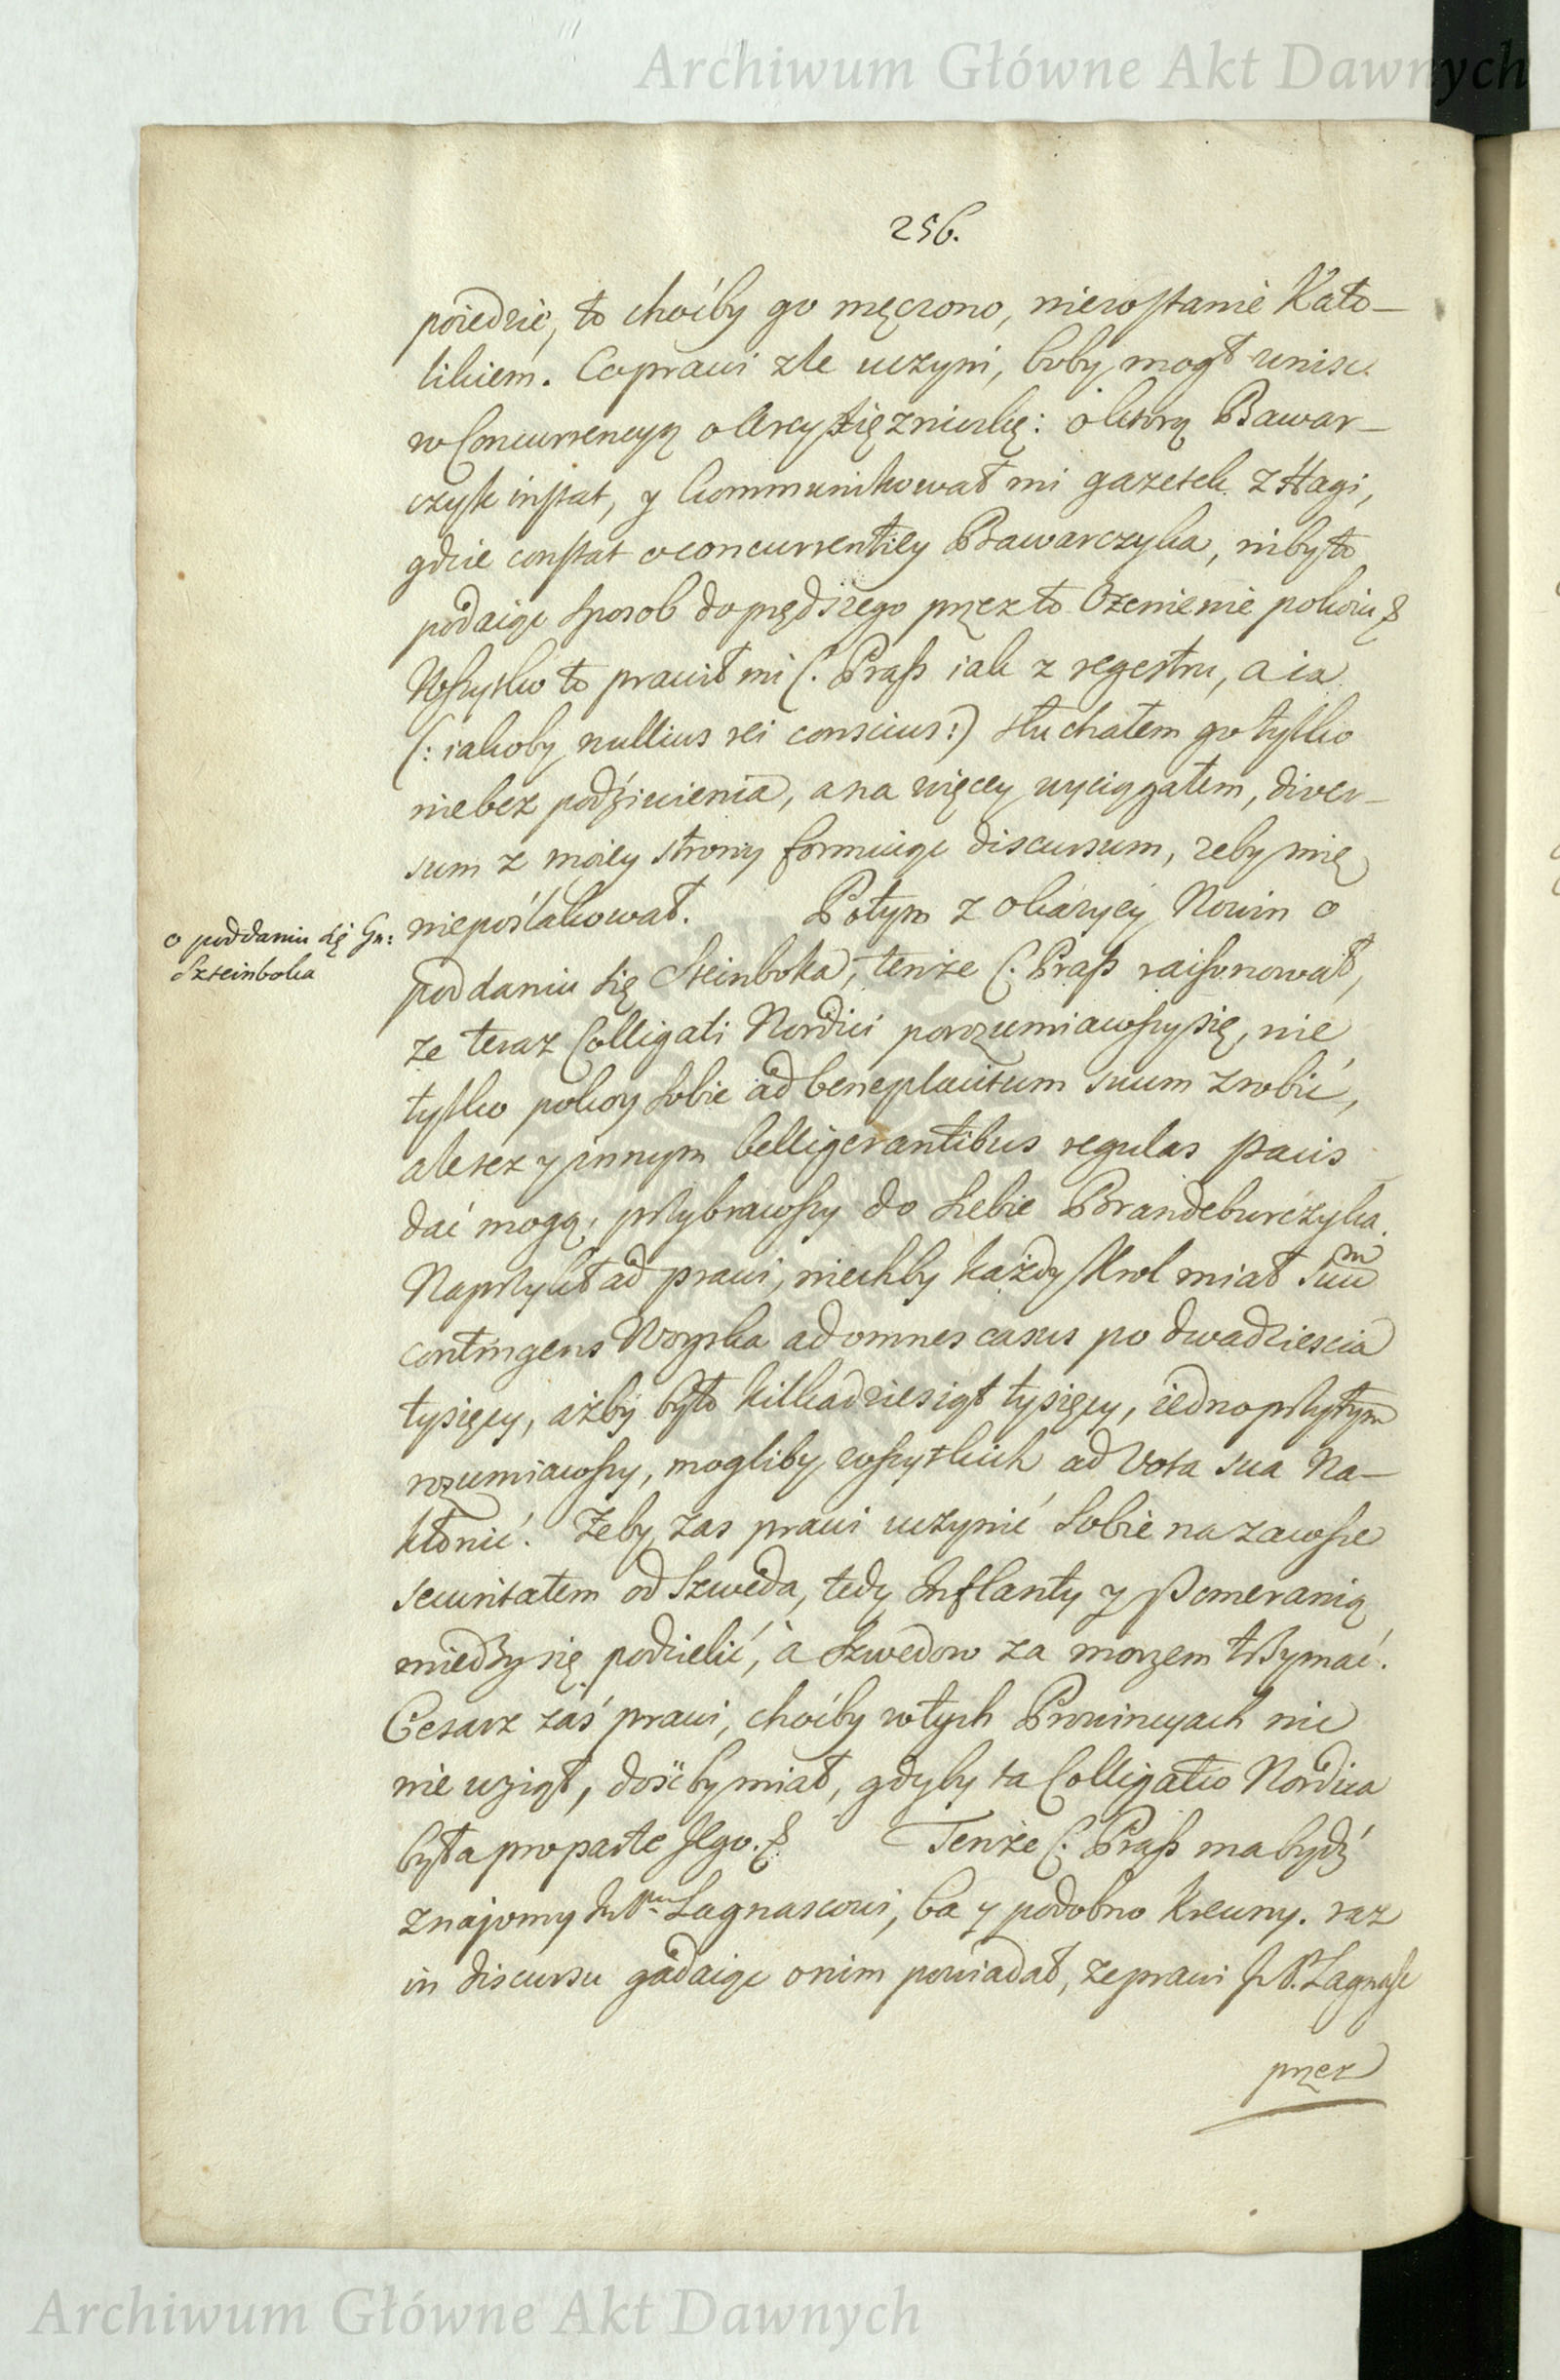 Archiwum Główne Akt Dawnych
256.
poiedzie, to choćby go męczono, niezostanie Kato-
likiem. Co prawi zle uczyni, boby mogł wniść
w Concurrencyą o Arcyxiężniczkę: o ktorą Bawar-
czyk instat, y kommunikował mi gazetek z Hagi,
gdzie constat o concurrentiey Bawarczyka, niby to
podaiąc sposob do prędszego przez to Ozenienie pokoiu
Wszytko to prawił mi C. Prass iak z regestru, a ia
(: iakoby nullius rei conscius :) słuchałem go tylko
niebez podziwienia, a na więcey wyciągałem, diver-
sum z moiey strony formuiąc discursum, zeby mię
nieposlakował. Potym z okazyey Nowin o
o poddaniu się Gn:
Szteinboka
poddaniu się Steinboka, tenże C. Prass raisonował,
ze teraz Colligati Nordici porozumiawszy się, nie
tylko pokoy sobie ad beneplacitum suum zrobić,
ale tez y innym belligerantibus regulas pacis
dać mogą, przybrawszy do siebie Brandeburczyka.
Naprzykład prawi, niechby każdy Krol miał suum
contingens Woyska ad omnes casus po dwadziescia
tysięcy, ażby było kilkadziesiąt tysięcy, iedno przytym
rozumiawszy, mogliby wszytkich ad Vota sua na-
kłonić. Zeby zas prawi uczynić sobie na zawsze
securitatem od Szweda, tedy Inflanty y Pomeranią
miedzy się podzielić, a Szwedow za morzem trzymać.
Cesarz zaś prawi, choćby w tych Prowincyach nic
nie wziął, dość by miał, gdyby ta Colligatio Nordica
była pro parte Jego. Tenże C. Prass ma bydź
znajomy Lagnascowi, ba y podobno krewny. raz
in discursu gadaiąc o nim powiadał, ze prawi JP. Lagnasc
przez
Archiwum Główne Akt Dawnych